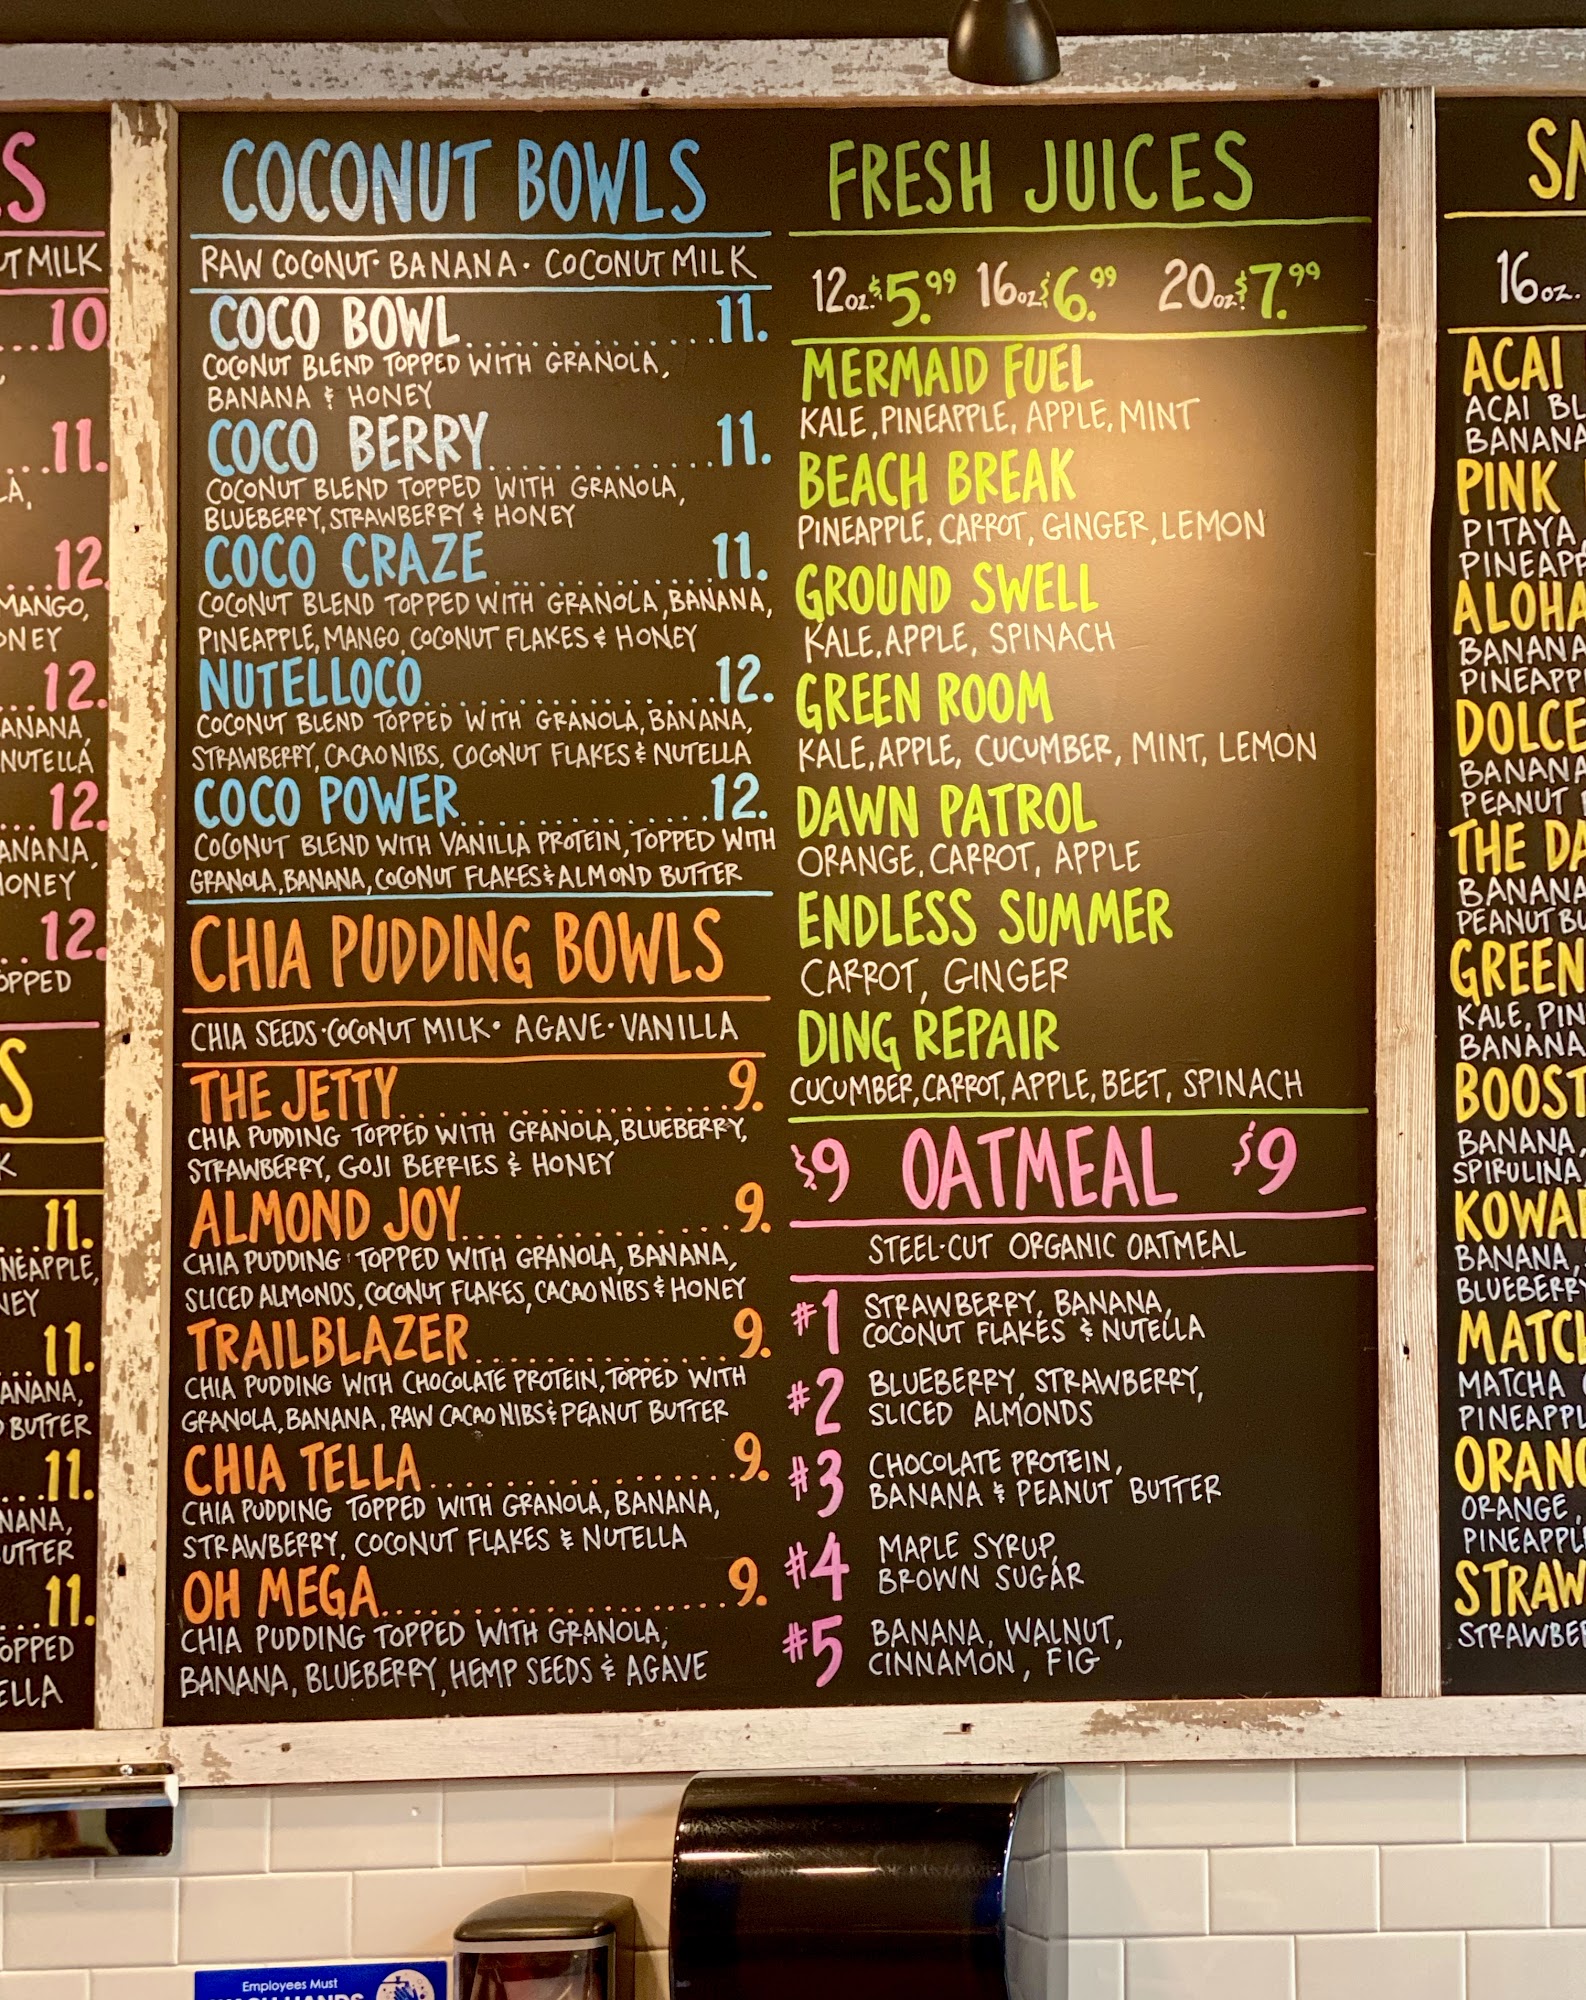 S
UT MILK
10
11.
LA,
12.
MANGO,
ONEY
12.
ANANA,
NUTELLA
12.
ANANA,
HONEY
12.
OPPED
S
K
11.
NEAPPLE,
NEY
11.
ANANA,
BUTTER
11.
NANA,
UTTER
11.
OPPED
ELLA
COCONUT BOWLS
RAW COCONUT · BANANA · COCONUT MILK
COCO BOWL 11.
COCONUT BLEND TOPPED WITH GRANOLA,
BANANA & HONEY
COCO BERRY 11.
COCONUT BLEND TOPPED WITH GRANOLA,
BLUEBERRY, STRAWBERRY & HONEY
COCO CRAZE 11.
COCONUT BLEND TOPPED WITH GRANOLA, BANANA,
PINEAPPLE, MANGO, COCONUT FLAKES & HONEY
NUTELLOCO 12.
COCONUT BLEND TOPPED WITH GRANOLA, BANANA,
STRAWBERRY, CACAO NIBS, COCONUT FLAKES & NUTELLA
COCO POWER 12.
COCONUT BLEND WITH VANILLA PROTEIN, TOPPED WITH
GRANOLA, BANANA, COCONUT FLAKES & ALMOND BUTTER
CHIA PUDDING BOWLS
CHIA SEEDS · COCONUT MILK · AGAVE · VANILLA
THE JETTY 9.
CHIA PUDDING TOPPED WITH GRANOLA, BLUEBERRY,
STRAWBERRY, GOJI BERRIES & HONEY
ALMOND JOY 9.
CHIA PUDDING TOPPED WITH GRANOLA, BANANA,
SLICED ALMONDS, COCONUT FLAKES, CACAO NIBS & HONEY
TRAILBLAZER 9.
CHIA PUDDING WITH CHOCOLATE PROTEIN, TOPPED WITH
GRANOLA, BANANA, RAW CACAO NIBS & PEANUT BUTTER
CHIA TELLA 9.
CHIA PUDDING TOPPED WITH GRANOLA, BANANA,
STRAWBERRY, COCONUT FLAKES & NUTELLA
OH MEGA 9.
CHIA PUDDING TOPPED WITH GRANOLA,
BANANA, BLUEBERRY, HEMP SEEDS & AGAVE
FRESH JUICES
12oz. $5.99 16oz. $6.99 20oz. $7.99
MERMAID FUEL
KALE, PINEAPPLE, APPLE, MINT
BEACH BREAK
PINEAPPLE, CARROT, GINGER, LEMON
GROUND SWELL
KALE, APPLE, SPINACH
GREEN ROOM
KALE, APPLE, CUCUMBER, MINT, LEMON
DAWN PATROL
ORANGE, CARROT, APPLE
ENDLESS SUMMER
CARROT, GINGER
DING REPAIR
CUCUMBER, CARROT, APPLE, BEET, SPINACH
$9 OATMEAL $9
STEEL-CUT ORGANIC OATMEAL
#1 STRAWBERRY, BANANA,
COCONUT FLAKES & NUTELLA
#2 BLUEBERRY, STRAWBERRY,
SLICED ALMONDS
#3 CHOCOLATE PROTEIN,
BANANA & PEANUT BUTTER
#4 MAPLE SYRUP,
BROWN SUGAR
#5 BANANA, WALNUT,
CINNAMON, FIG
16oz.
ACAI
ACAI BL
BANANA
PINK
PITAYA
PINEAPP
ALOHA
BANANA
PINEAPP
DOLCE
BANANA
PEANUT
THE DA
BANANA
PEANUT BU
GREEN
KALE, PIN
BANANA
BOOST
BANANA,
SPIRULINA
KOWA
BANANA,
BLUEBERRY
MATCH
MATCHA
PINEAPPL
ORANG
ORANGE,
PINEAPPLE
STRAW
STRAWBE
Employees Must